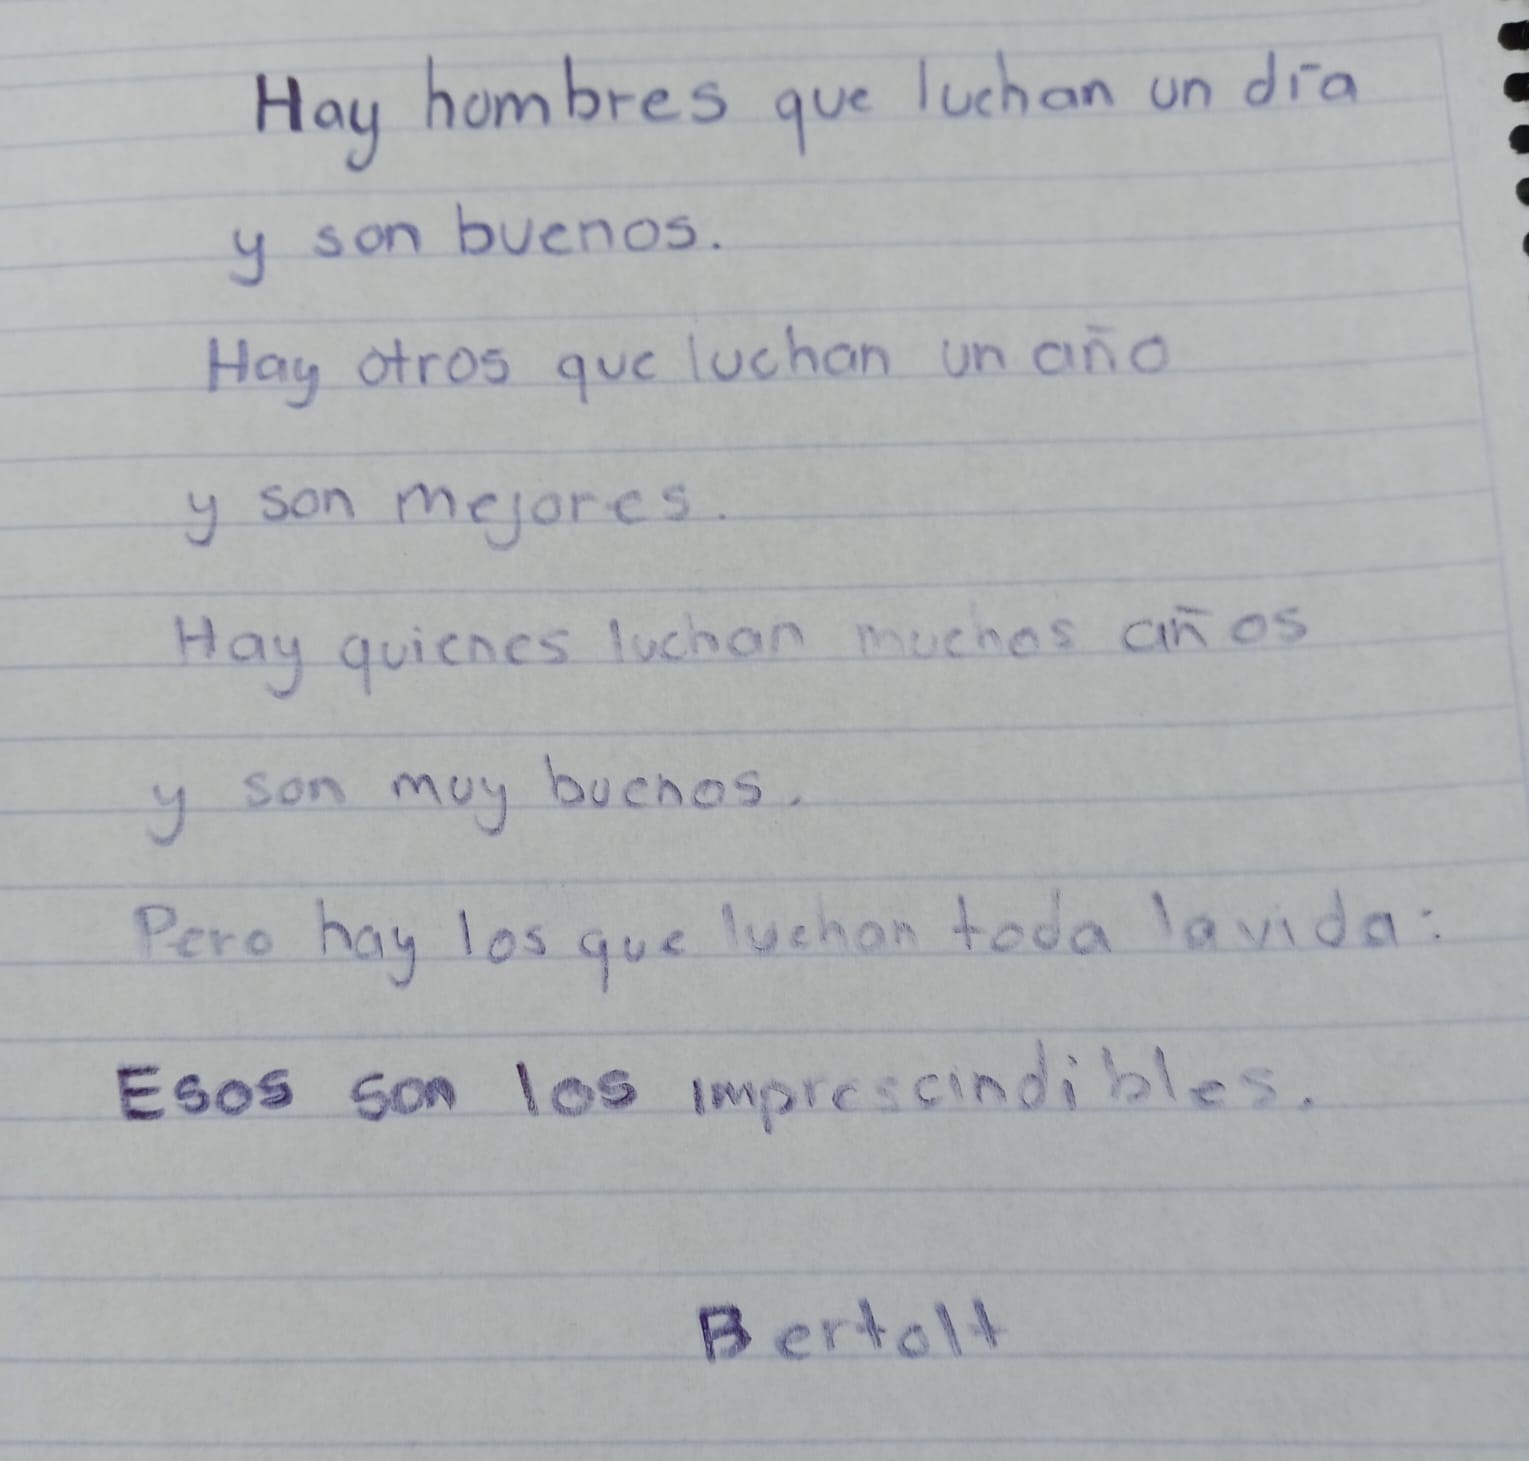 Hay hombres que luchan un día
y son buenos.
Hay otros que luchan un año
y son mejores.
Hay quienes luchan muchos años
y son muy buenos.
Pero hay los que luchan toda la vida:
Esos son los imprescindibles.
Bertolt